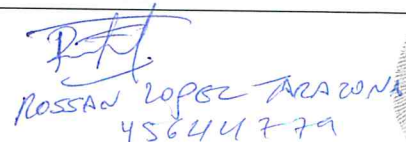 ROSSAN LOPEZ TARAZONA
45644779